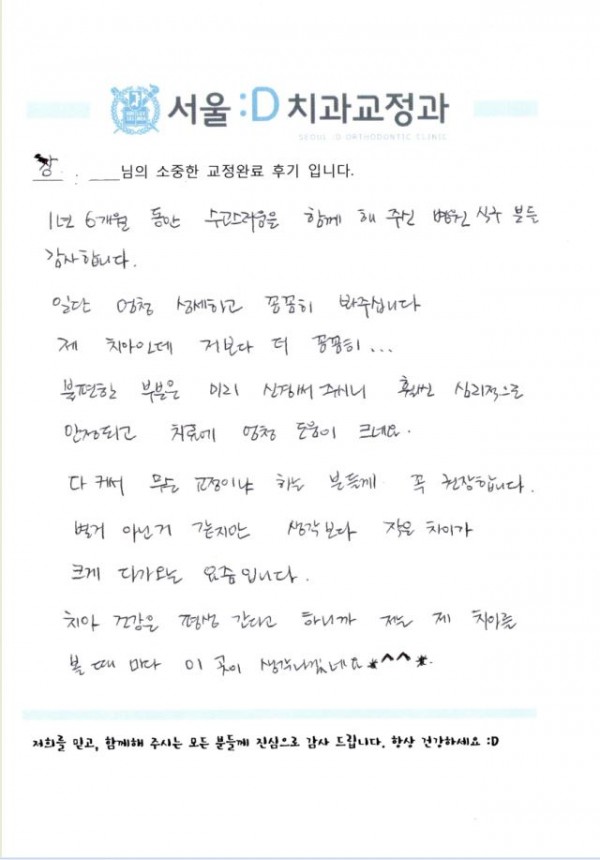 서울 :D 치과교정과
SEOUL :D ORTHODONTIC CLINIC
장 . : ___님의 소중한 교정완료 후기 입니다.
1년 6개월 동안 수고스러움을 함께 해 주신 병원 식구 분들
감사합니다.
일단 엄청 섬세하고 꼼꼼히 봐주십니다
제 치아인데 저보다 더 꼼꼼히...
불편한 부분은 미리 신경써주시니 훨씬 심리적으로
안정되고 치료에 엄청 도움이 크네요.
다 커서 무슨 교정이냐 하는 분들께 꼭 권장합니다.
별거 아닌거 같지만 생각보다 작은 차이가
크게 다가오는 요즘입니다.
치아 건강은 평생 간다고 하니까 저는 제 치아를
볼 때 마다 이 곳이 생각나겠네요 *^^*.
저희를 믿고, 함께해 주시는 모든 분들께 진심으로 감사 드립니다. 항상 건강하세요 :D